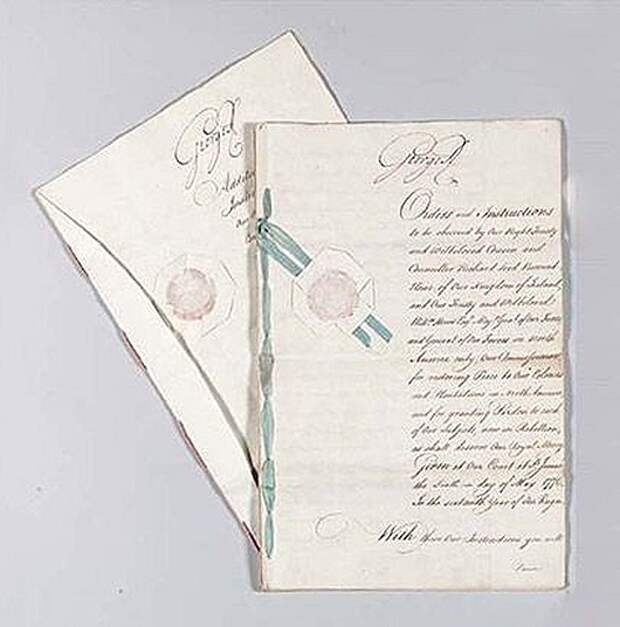 George R
Additi
Instru
our
George R
Orders and Instructions
to be observed by Our Right Trusty
and Welbeloved Cousin and
Councillor Richard Lord Viscount
Howe of Our Kingdom of Ireland,
and Our Trusty and Welbeloved
Will.m Howe Esq.r Maj.r Gen.l of Our Forces
and General of Our Forces in North
America only, Our Commissioners
for restoring Peace to Our Colonies
and Plantations in North America
and for granting Pardon to such
of Our Subjects, now in Rebellion,
as shall deserve Our Royal Mercy
Given at Our Court at St. James's
the Sixth day of May 1776
In the sixteenth Year of Our Reign
With these Our Instructions you will